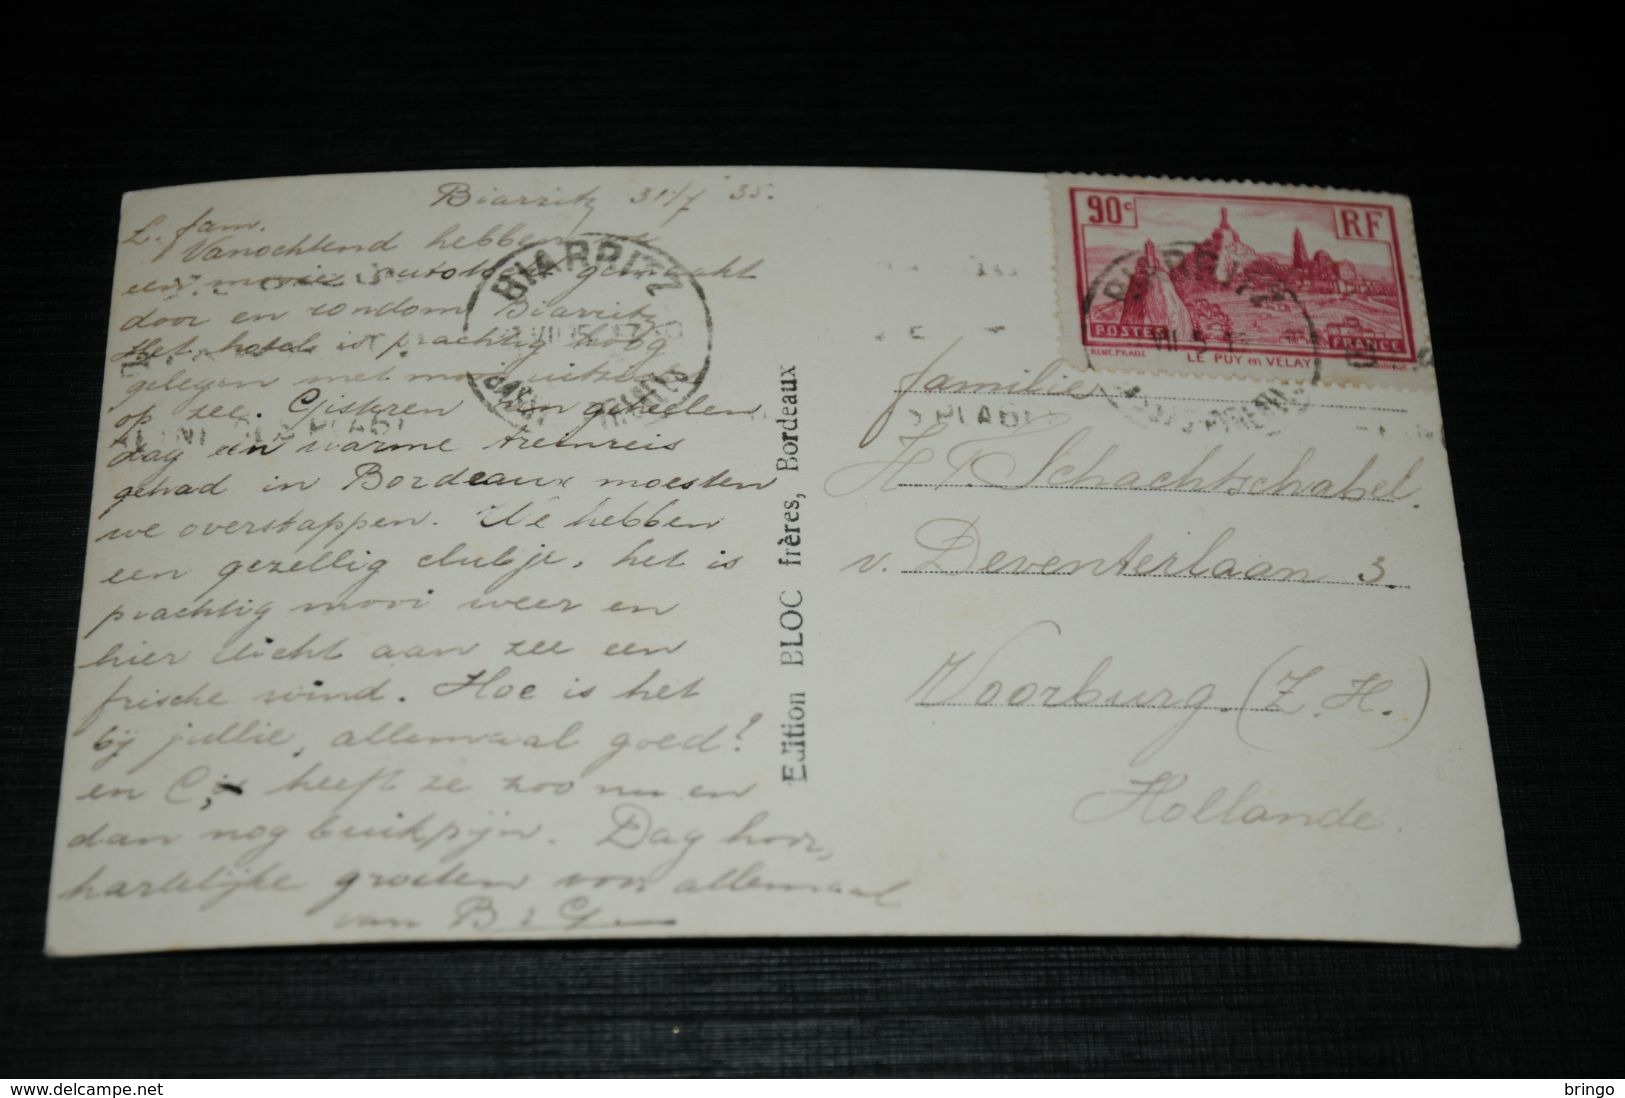 Biarritz 31/7 '35.
L. fam.
Vanochtend hebben we
een mooie autotocht gemaakt
door en rondom Biarritz
Het hotel is prachtig hoog
gelegen met mooi uitzicht
op zee. Gisteren een geheelen
dag een warme treinreis
gehad in Bordeaux moesten
we overstappen. We hebben
een gezellig clubje, het is
prachtig mooi weer en
hier dicht aan zee een
frische wind. Hoe is het
bij jullie, allemaal goed?
en C, heeft ze zoo nu en
dan nog buikpijn. Dag hoor,
hartelijke groeten von allemaal
van B & G
Edition BLOC frères, Bordeaux
BIARRITZ
90c RF
POSTES FRANCE
LE PUY en VELAY
BIARRITZ
familie
H. T. Schachtschabel.
v. Deventerlaan 3.
Voorburg. (Z. H.)
Hollande.
bringo